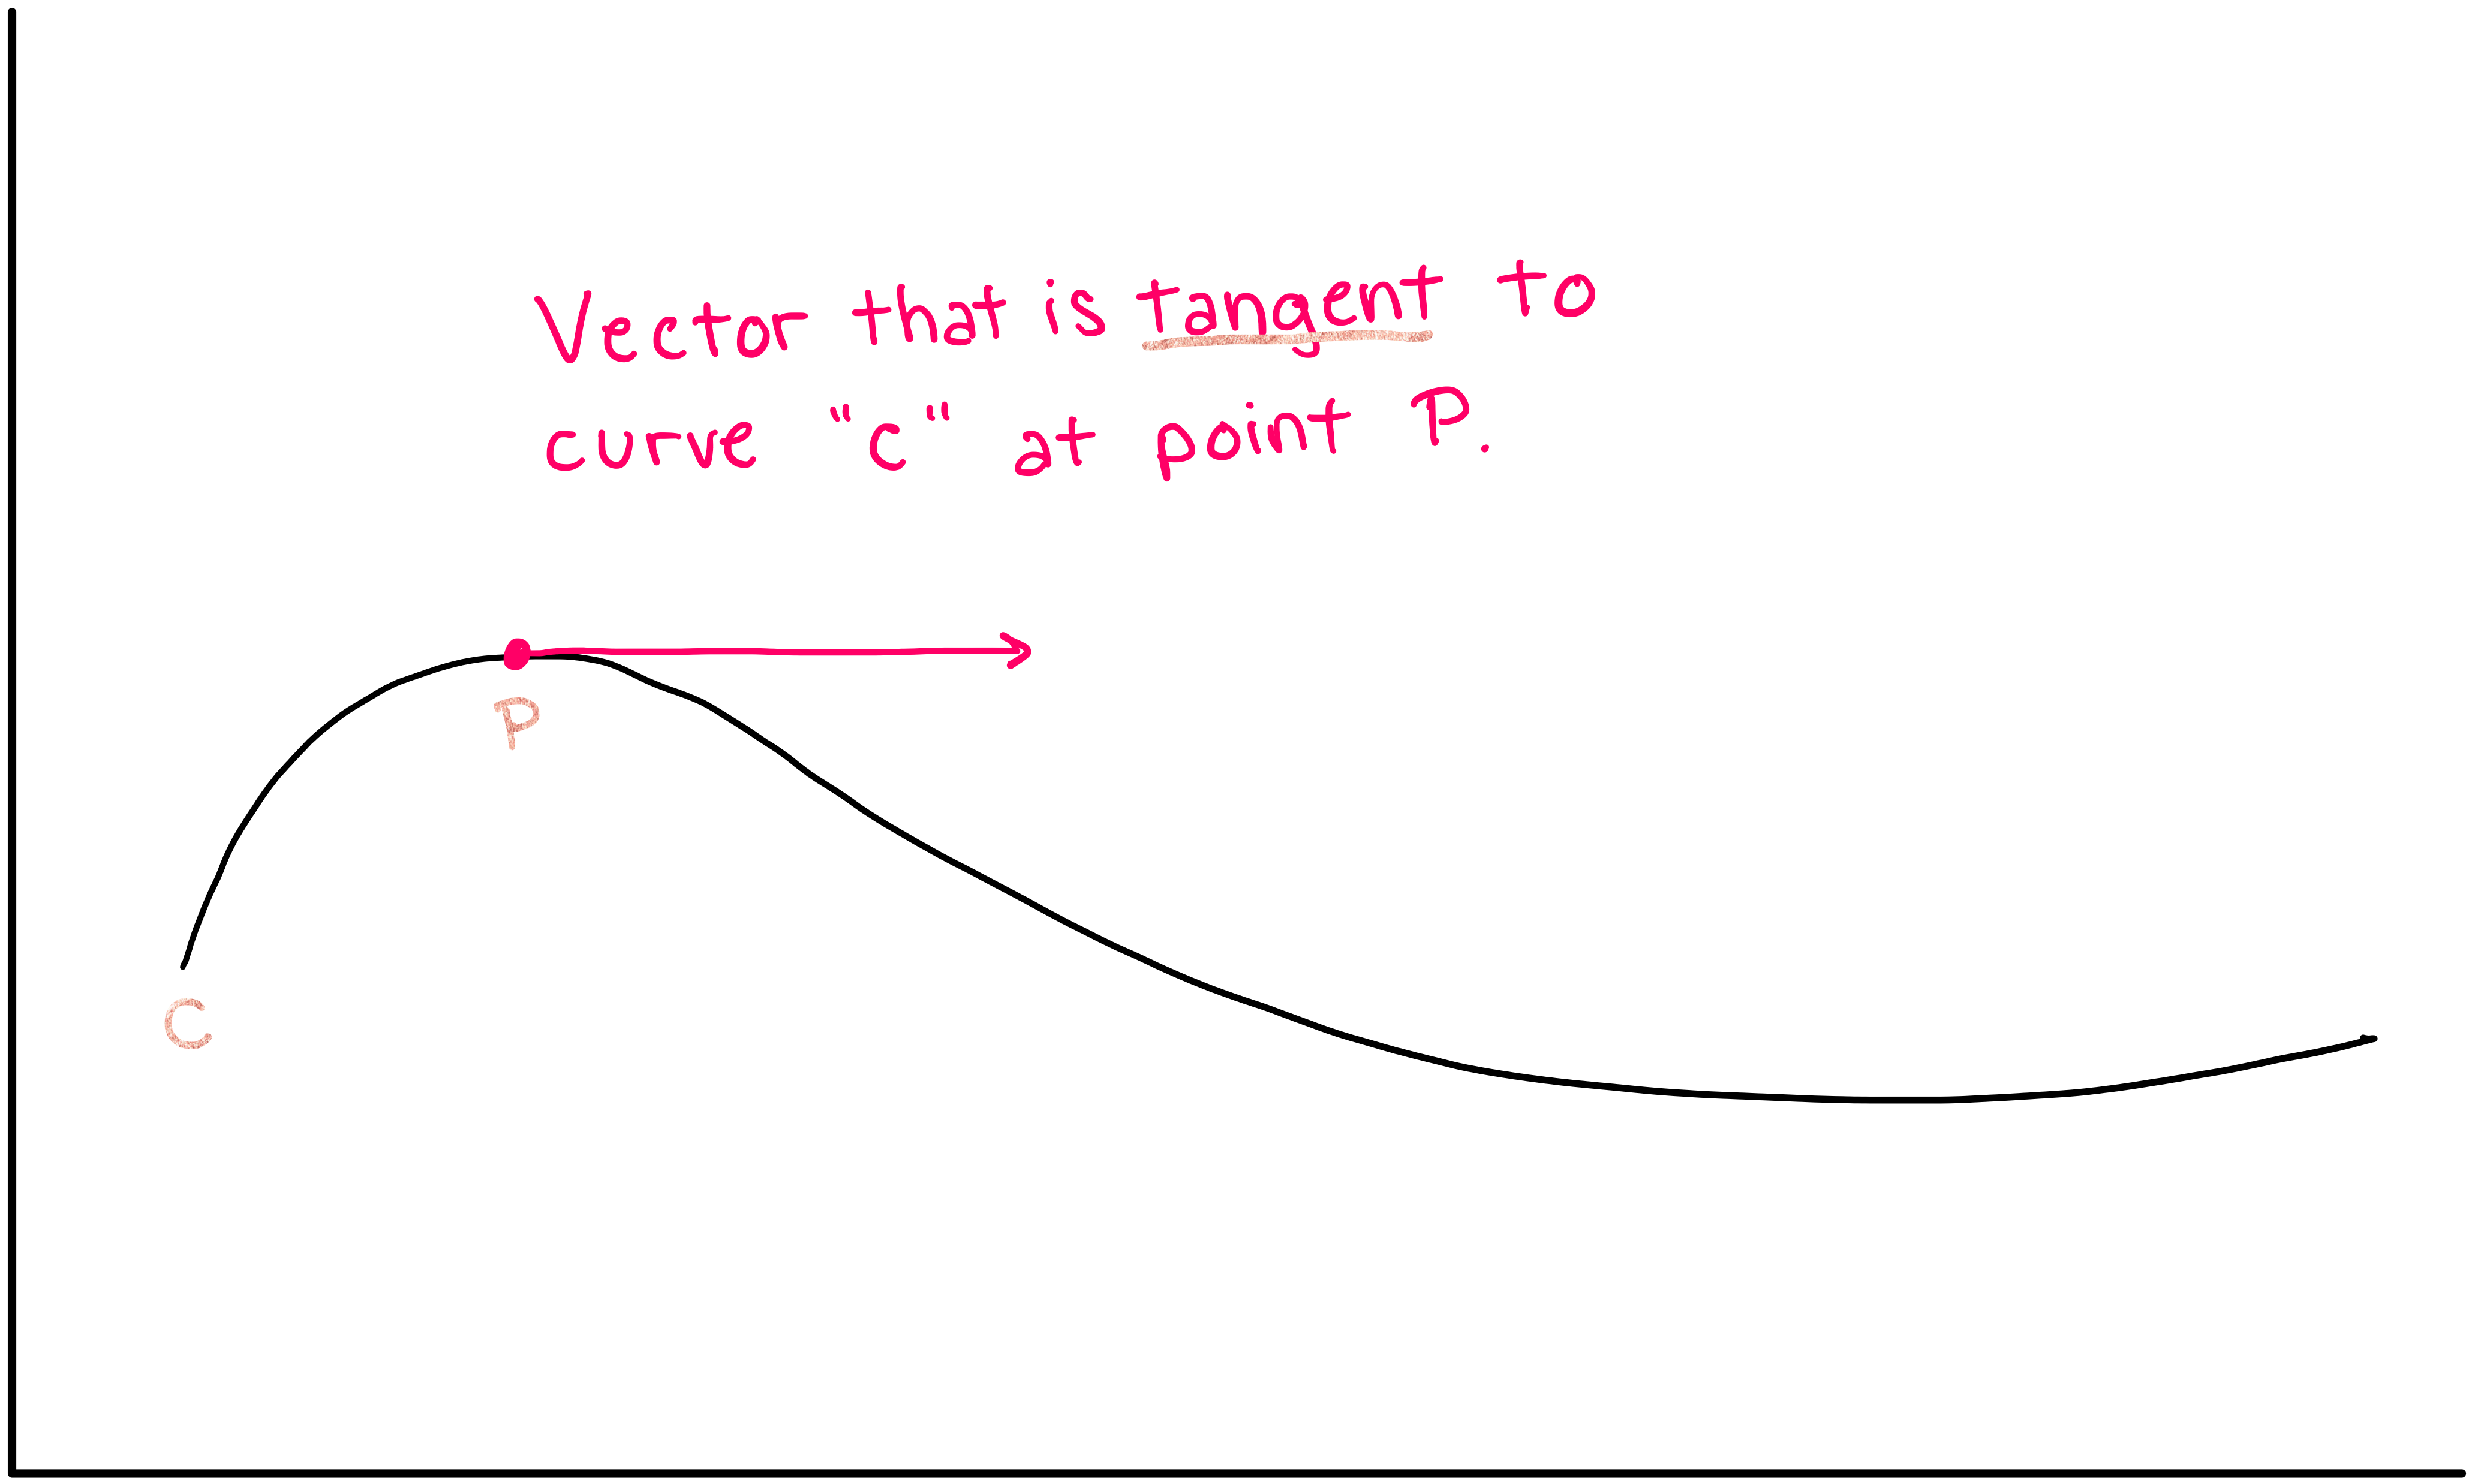 Vector that is tangent to
curve "c" at point P.
P
C